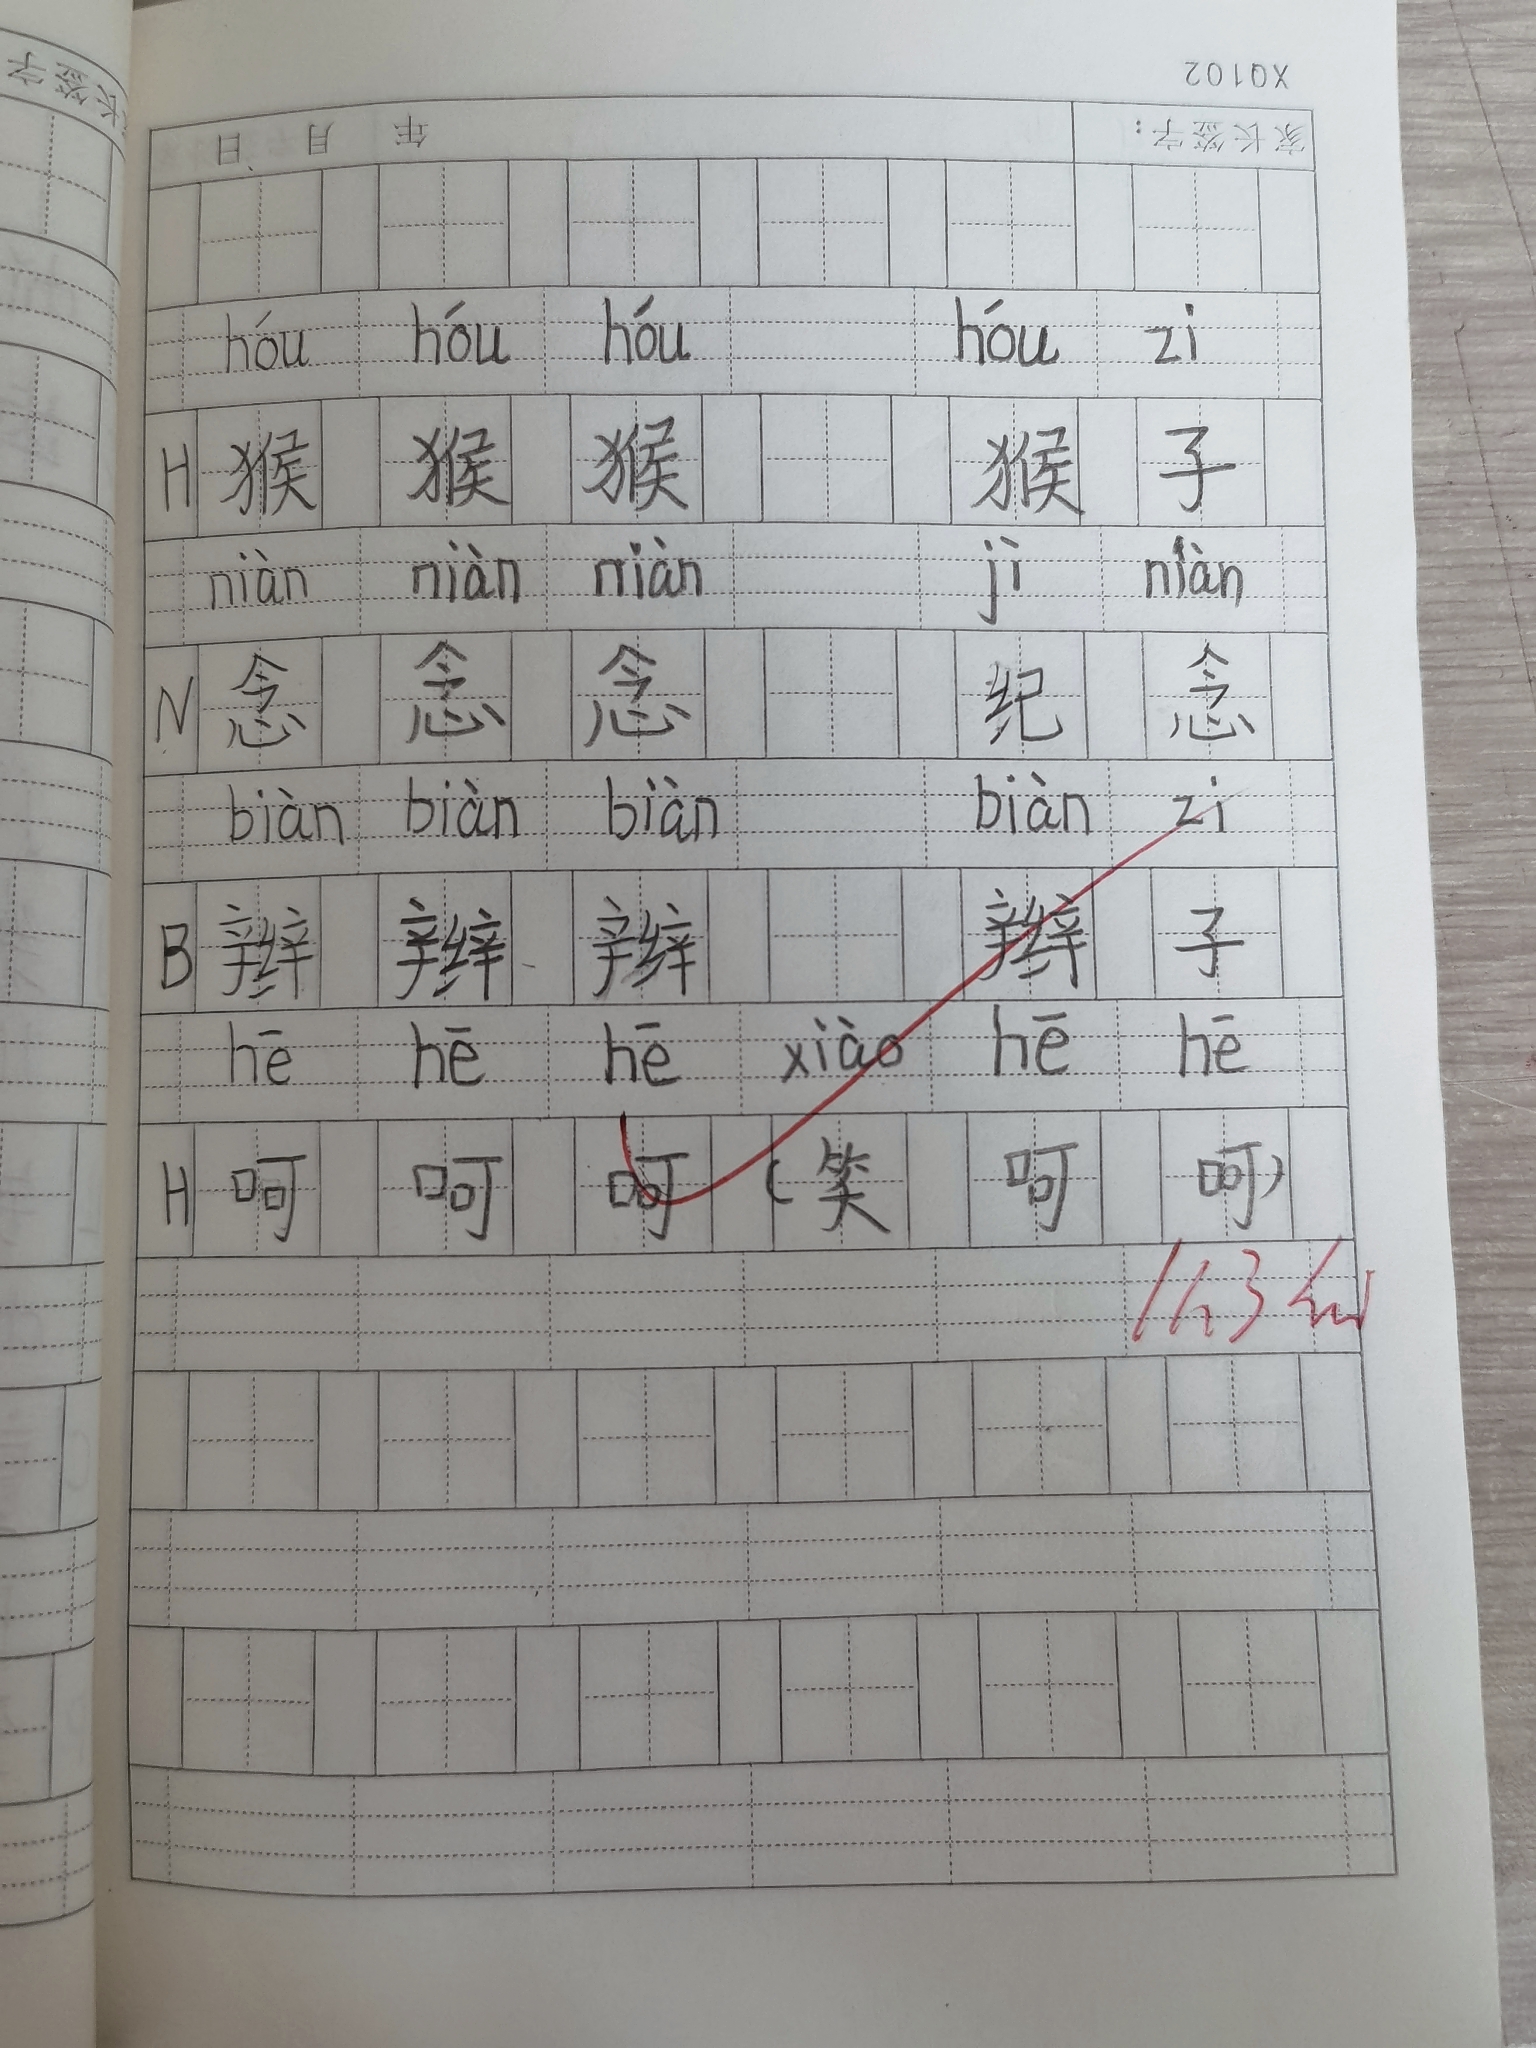 XQ102
家长签字： 年 月 日
hóu hóu hóu hóu zi
H 猴 猴 猴 猴 子
niàn niàn niàn jì niàn
N 念 念 念 纪 念
biàn biàn biàn biàn zi
B 辫 辫 辫 辫 子
hē hē hē xiào hē hē
H 呵 呵 呵 (笑 呵 呵)